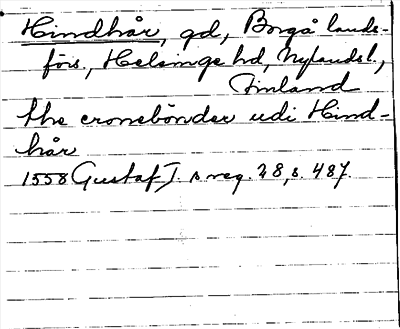 Hindhår, gd, Borgå lands-
förs., Helsinge hd, Nylandsl.,
Finland
the cronebönder udi Hind-
hår
1558 Gustaf I:s reg. 28, s. 487.